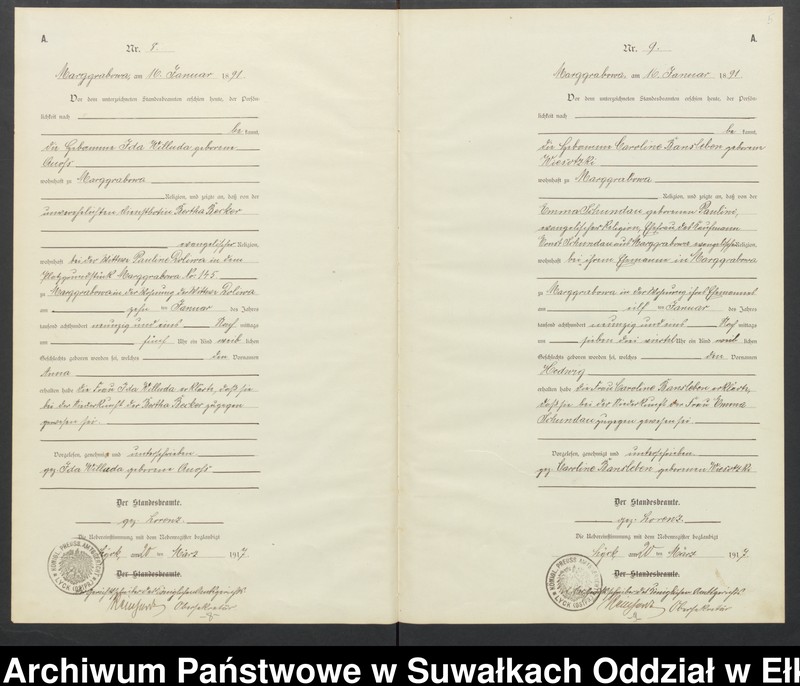 A.
Nr. 8.
Marggrabowa, am 16. Januar 1891
Vor dem unterzeichneten Standesbeamten erschien heute, der Persön-
lichkeit nach
be kannt,
die Hebamme Ida Willuda geborene
wohnhaft zu Marggrabowa
Religion, und zeigte an, daß von der
unverehelichten Dienstbotin Bertha Becker
evangelischer Religion,
wohnhaft bei der Wittwe Pauline in dem
Marggrabowa No 145
zu Marggrabowa in der Wohnung der Wittwe
am zehn ten Januar des Jahres
tausend achthundert neunzig und eins Nach mittags
um fünf Uhr ein Kind weib lichen
Geschlechts geboren worden sei, welches den Vornamen
Anna
erhalten habe die Frau Ida Willuda erklärte, daß sie
bei der Niederkunft der Bertha Becker zugegen
gewesen sei.
Vorgelesen, genehmigt und unterschrieben
gez. Ida Willuda geborene
Der Standesbeamte.
gez. Lorenz.
Die Uebereinstimmung mit dem Nebenregister beglaubigt
Lyck am 20 ten März 1917
Der Standesbeamte.
Gerichtsschreiber des Königlichen Amtsgerichts
Obersekretär
KÖNIGL. PREUSS. AMTSGERICHT
LYCK (OSTPR.)
A.
Nr. 9.
Marggrabowa, am 16. Januar 1891
Vor dem unterzeichneten Standesbeamten erschien heute, der Persön-
lichkeit nach
be kannt,
die Hebamme Caroline Bansleben geborene
wohnhaft zu Marggrabowa
Religion, und zeigte an, daß von der
Emma Schundau geborenen
evangelischer Religion, Ehefrau des Kaufmann
Ernst Schundau aus Marggrabowa evangelischer Religion,
wohnhaft bei ihrem Ehemanne in Marggrabowa
zu Marggrabowa in der Wohnung ihres Ehemannes
am elf ten Januar des Jahres
tausend achthundert neunzig und eins Nach mittags
um sieben drei viertel Uhr ein Kind weib lichen
Geschlechts geboren worden sei, welches den Vornamen
Hedwig
erhalten habe die Frau Caroline Bansleben erklärte,
daß sie bei der Niederkunft der Frau Emma
Schundau zugegen gewesen sei
Vorgelesen, genehmigt und unterschrieben
gez. Caroline Bansleben geborene
Der Standesbeamte.
gez. Lorenz.
Die Uebereinstimmung mit dem Nebenregister beglaubigt
Lyck am 20 ten März 1917
Der Standesbeamte.
Gerichtsschreiber des Königlichen Amtsgerichts
Obersekretär
KÖNIGL. PREUSS. AMTSGERICHT
LYCK (OSTPR.)
Archiwum Państwowe w Suwałkach Oddział w Ełk